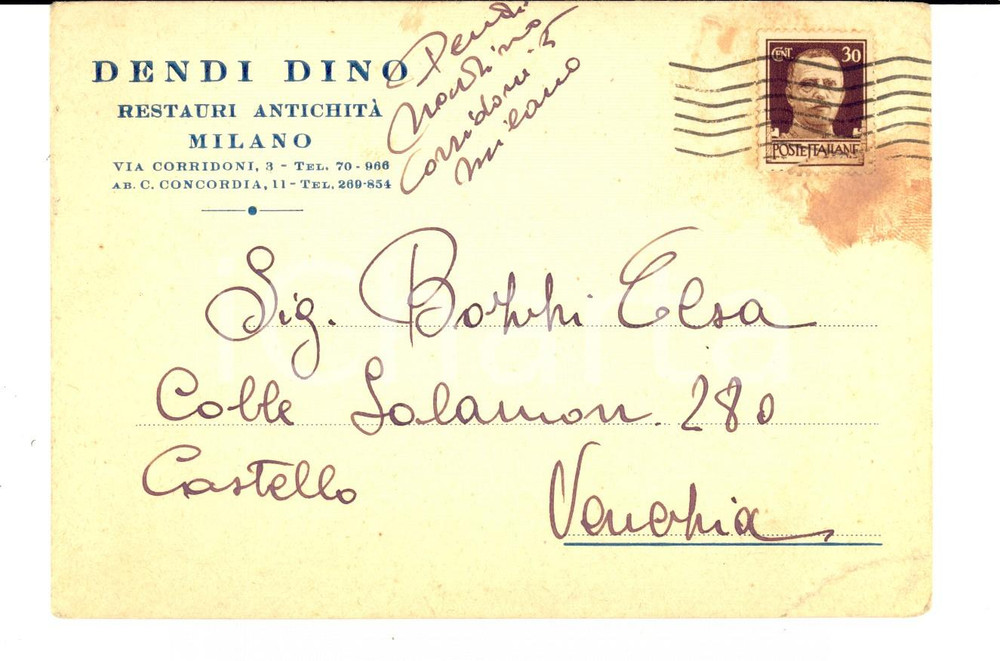 DENDI DINO
RESTAURI ANTICHITÀ
MILANO
VIA CORRIDONI, 3 - TEL. 70-966
AB. C. CONCORDIA, 11 - TEL. 269-854
Dendi
Corridoni 5
milano
CENT 30
POSTE ITALIANE
Sig. Bozzi Elsa
Colle Solamon. 280
Castello
Venezia
iCharta